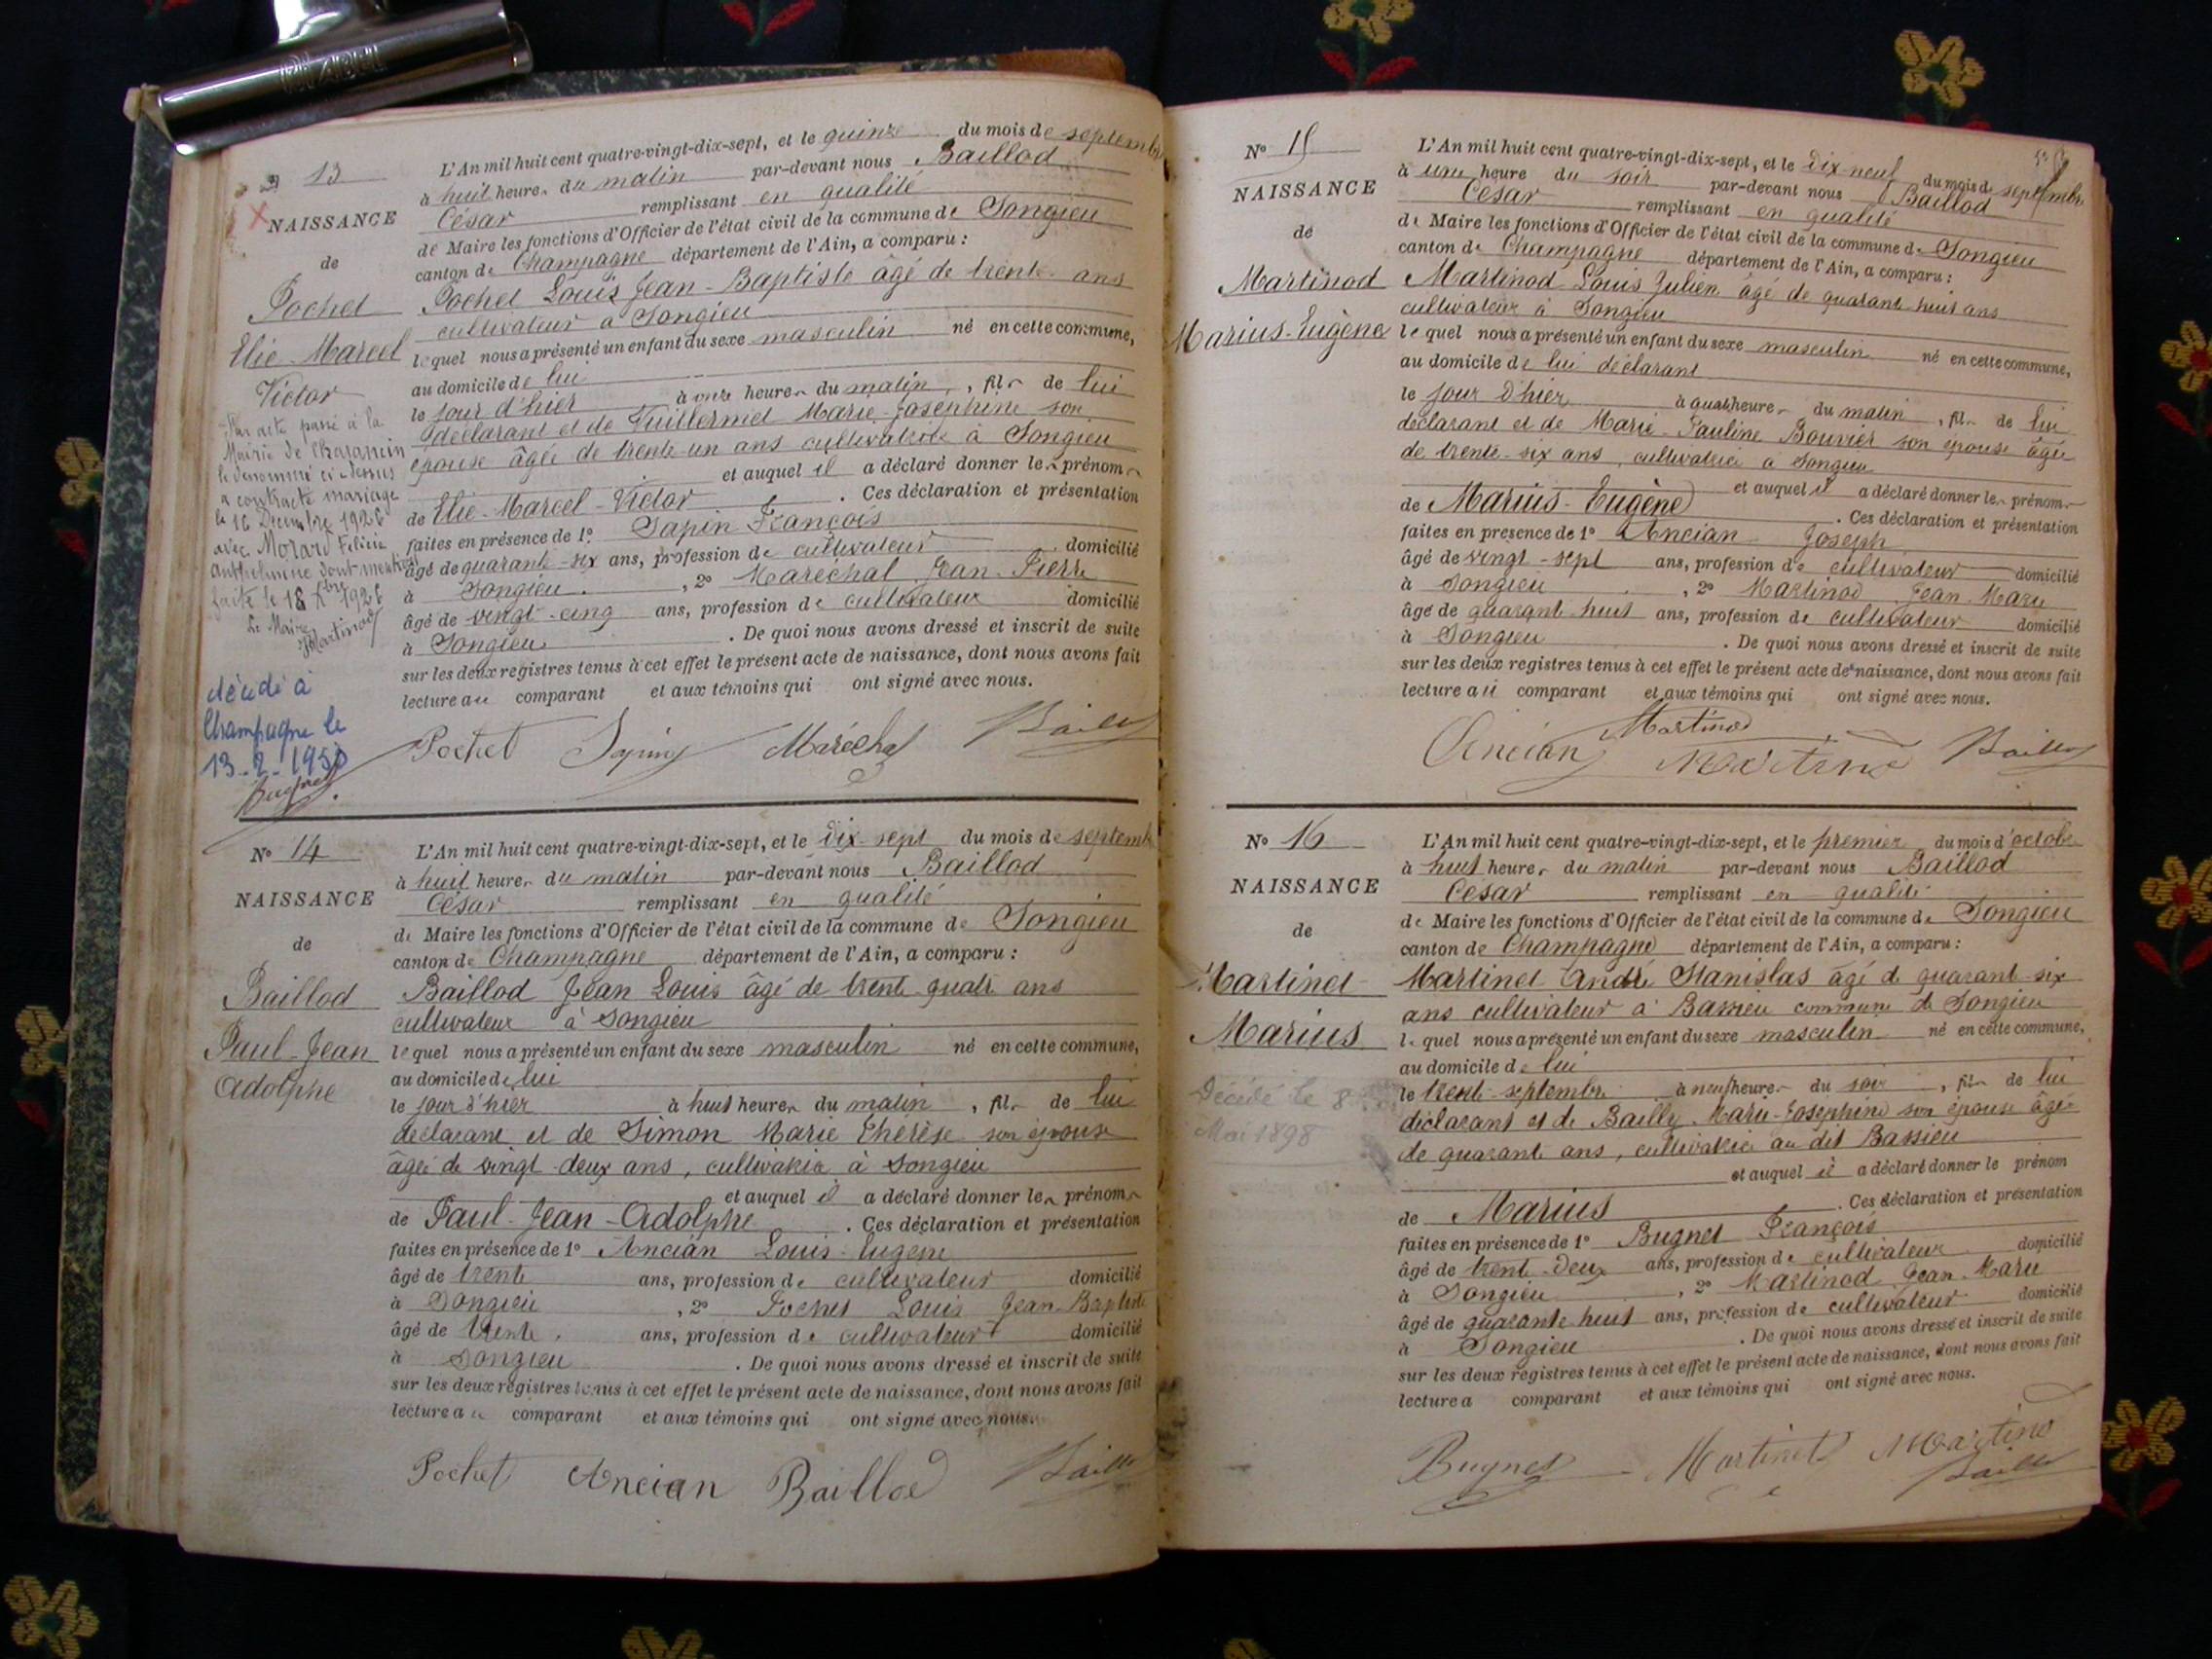 13
NAISSANCE
de
Pochet
Elie-Marcel
Victor
Par acte passé à la
Mairie de
le dénommé ci-dessus
a contracté mariage
le 16 Décembre 1926
avec Morard Félicie
Anthelmine dont mention
faite le 18 Xbre 1926
Le Maire
Martinod
décédé à
Champagne le
13-2-1950
L'An mil huit cent quatre-vingt-dix-sept, et le quinze du mois de septembre
à huit heures du matin par-devant nous Baillod
César remplissant en qualité
de Maire les fonctions d'Officier de l'état civil de la commune de Songieu
canton de Champagne département de l'Ain, a comparu :
Pochet Louis Jean-Baptiste âgé de trente ans
cultivateur à Songieu
lequel nous a présenté un enfant du sexe masculin né en cette commune,
au domicile de lui
le jour d'hier à onze heures du matin, fils de lui
déclarant et de Vuillermet Marie-Joséphine son
épouse âgée de trente-un ans cultivatrice à Songieu
et auquel il a déclaré donner les prénoms
de Elie-Marcel-Victor. Ces déclaration et présentation
faites en présence de 1° Sapin François
âgé de quarante-six ans, profession de cultivateur domicilié
à Songieu, 2° Maréchal Jean-Pierre
âgé de vingt-cinq ans, profession de cultivateur domicilié
à Songieu. De quoi nous avons dressé et inscrit de suite
sur les deux registres tenus à cet effet le présent acte de naissance, dont nous avons fait
lecture au comparant et aux témoins qui ont signé avec nous.
Pochet Sapin Maréchal Baillod
No 14
NAISSANCE
de
Baillod
Paul-Jean
Adolphe
L'An mil huit cent quatre-vingt-dix-sept, et le dix-sept du mois de septembre
à huit heures du matin par-devant nous Baillod
César remplissant en qualité
de Maire les fonctions d'Officier de l'état civil de la commune de Songieu
canton de Champagne département de l'Ain, a comparu :
Baillod Jean Louis âgé de trente-quatre ans
cultivateur à Songieu
lequel nous a présenté un enfant du sexe masculin né en cette commune,
au domicile de lui
le jour d'hier à huit heures du matin, fils de lui
déclarant et de Simon Marie Thérèse son épouse
âgée de vingt-deux ans, cultivatrice à Songieu
et auquel il a déclaré donner les prénoms
de Paul-Jean-Adolphe. Ces déclaration et présentation
faites en présence de 1° Ancian Louis-Eugène
âgé de trente ans, profession de cultivateur domicilié
à Songieu, 2° Pochet Louis Jean-Baptiste
âgé de trente ans, profession de cultivateur domicilié
à Songieu. De quoi nous avons dressé et inscrit de suite
sur les deux registres tenus à cet effet le présent acte de naissance, dont nous avons fait
lecture au comparant et aux témoins qui ont signé avec nous.
Pochet Ancian Baillod Baillod
No 15
NAISSANCE
de
Martinod
Marius-Eugène
L'An mil huit cent quatre-vingt-dix-sept, et le dix-neuf du mois de septembre
à une heure du soir par-devant nous Baillod
César remplissant en qualité
de Maire les fonctions d'Officier de l'état civil de la commune de Songieu
canton de Champagne département de l'Ain, a comparu :
Martinod Louis Julien âgé de quarante-huit ans
cultivateur à Songieu
lequel nous a présenté un enfant du sexe masculin né en cette commune,
au domicile de lui déclarant
le jour d'hier à quatre heures du matin, fils de lui
déclarant et de Marie-Pauline Bouvier son épouse âgée
de trente-six ans, cultivatrice à Songieu
et auquel il a déclaré donner les prénoms
de Marius-Eugène. Ces déclaration et présentation
faites en présence de 1° Ancian Joseph
âgé de vingt-sept ans, profession de cultivateur domicilié
à Songieu, 2° Martinod Jean-Marie
âgé de quarante-huit ans, profession de cultivateur domicilié
à Songieu. De quoi nous avons dressé et inscrit de suite
sur les deux registres tenus à cet effet le présent acte de naissance, dont nous avons fait
lecture au comparant et aux témoins qui ont signé avec nous.
Martinod
Ancian Martinod Baillod
No 16
NAISSANCE
de
Martinet
Marius
Décédé le 8
Mai 1898
L'An mil huit cent quatre-vingt-dix-sept, et le premier du mois d'octobre
à huit heures du matin par-devant nous Baillod
César remplissant en qualité
de Maire les fonctions d'Officier de l'état civil de la commune de Songieu
canton de Champagne département de l'Ain, a comparu :
Martinet André Stanislas âgé de quarante-six
ans cultivateur à Bassieu commune de Songieu
lequel nous a présenté un enfant du sexe masculin né en cette commune,
au domicile de lui
le trente septembre à neuf heures du soir, fils de lui
déclarant et de Bailly Marie-Joséphine son épouse âgée
de quarante ans, cultivatrice au dit Bassieu
et auquel il a déclaré donner le prénom
de Marius. Ces déclaration et présentation
faites en présence de 1° Bugnet François
âgé de trente-deux ans, profession de cultivateur domicilié
à Songieu, 2° Martinod Jean-Marie
âgé de quarante-huit ans, profession de cultivateur domicilié
à Songieu. De quoi nous avons dressé et inscrit de suite
sur les deux registres tenus à cet effet le présent acte de naissance, dont nous avons fait
lecture a comparant et aux témoins qui ont signé avec nous.
Bugnet Martinet Martinod
Baillod